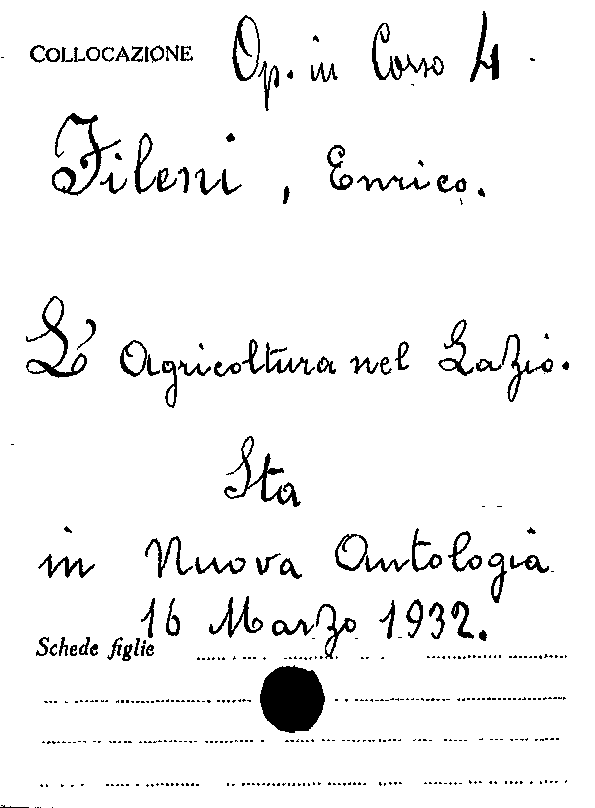 COLLOCAZIONE Op. in Corso 4.
Fileni, Enrico.
L'Agricoltura nel Lazio.
Sta
in Nuova Antologia
16 Marzo 1932.
Schede figlie